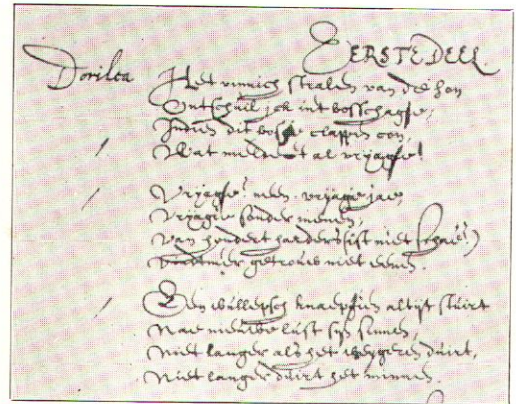 EERSTE DEEL.
Dorilea Het vinnich stralen van de Son
Ontschuil jck int bosschaghe,
Indien dit bosje clappen con,
Wat meldet al vrijaghe!
Vrijaghe? neen. vrijage jae,
Vrijage sonder menen,
Van hondert harders (ist niet schae?)
Vindtmer getrouw niet eenen.
Een wullepsch knaepjen altijt stuirt
Nae nieuwe lust sijn sinnen,
Niet langer als het weijgeren duirt,
Niet langer duirt het minnen.